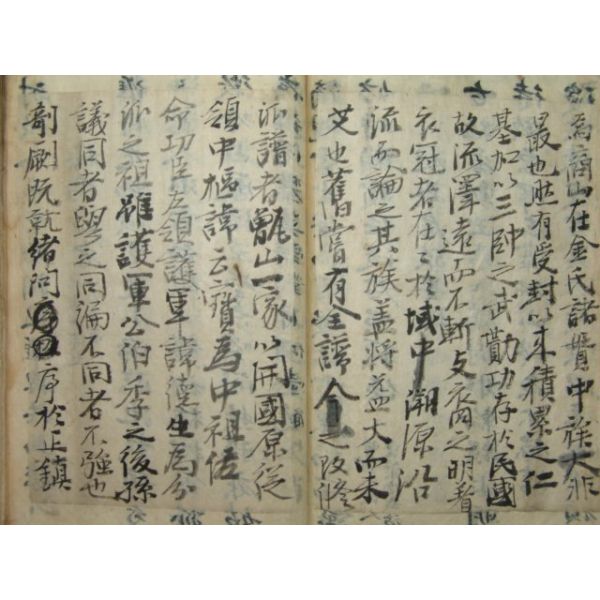 為商山在金氏諸貫中族大非
最也然有受封以來積累之仁
基加以三帥之武勳功存於民國
故流澤遠而不斬與裔之明著
衣冠者在在於域中溯源沿
流而論之其族蓋將益大而未
艾也舊嘗有全譜今之改修
派譜者甑山一家以開國原從
領中樞諱云寶為中祖佐
命功臣左領護軍諱德生為分
派之祖雖護軍公伯季之後孫
議同者與之同編不同者不強也
剞劂既就緒問序於止鎭